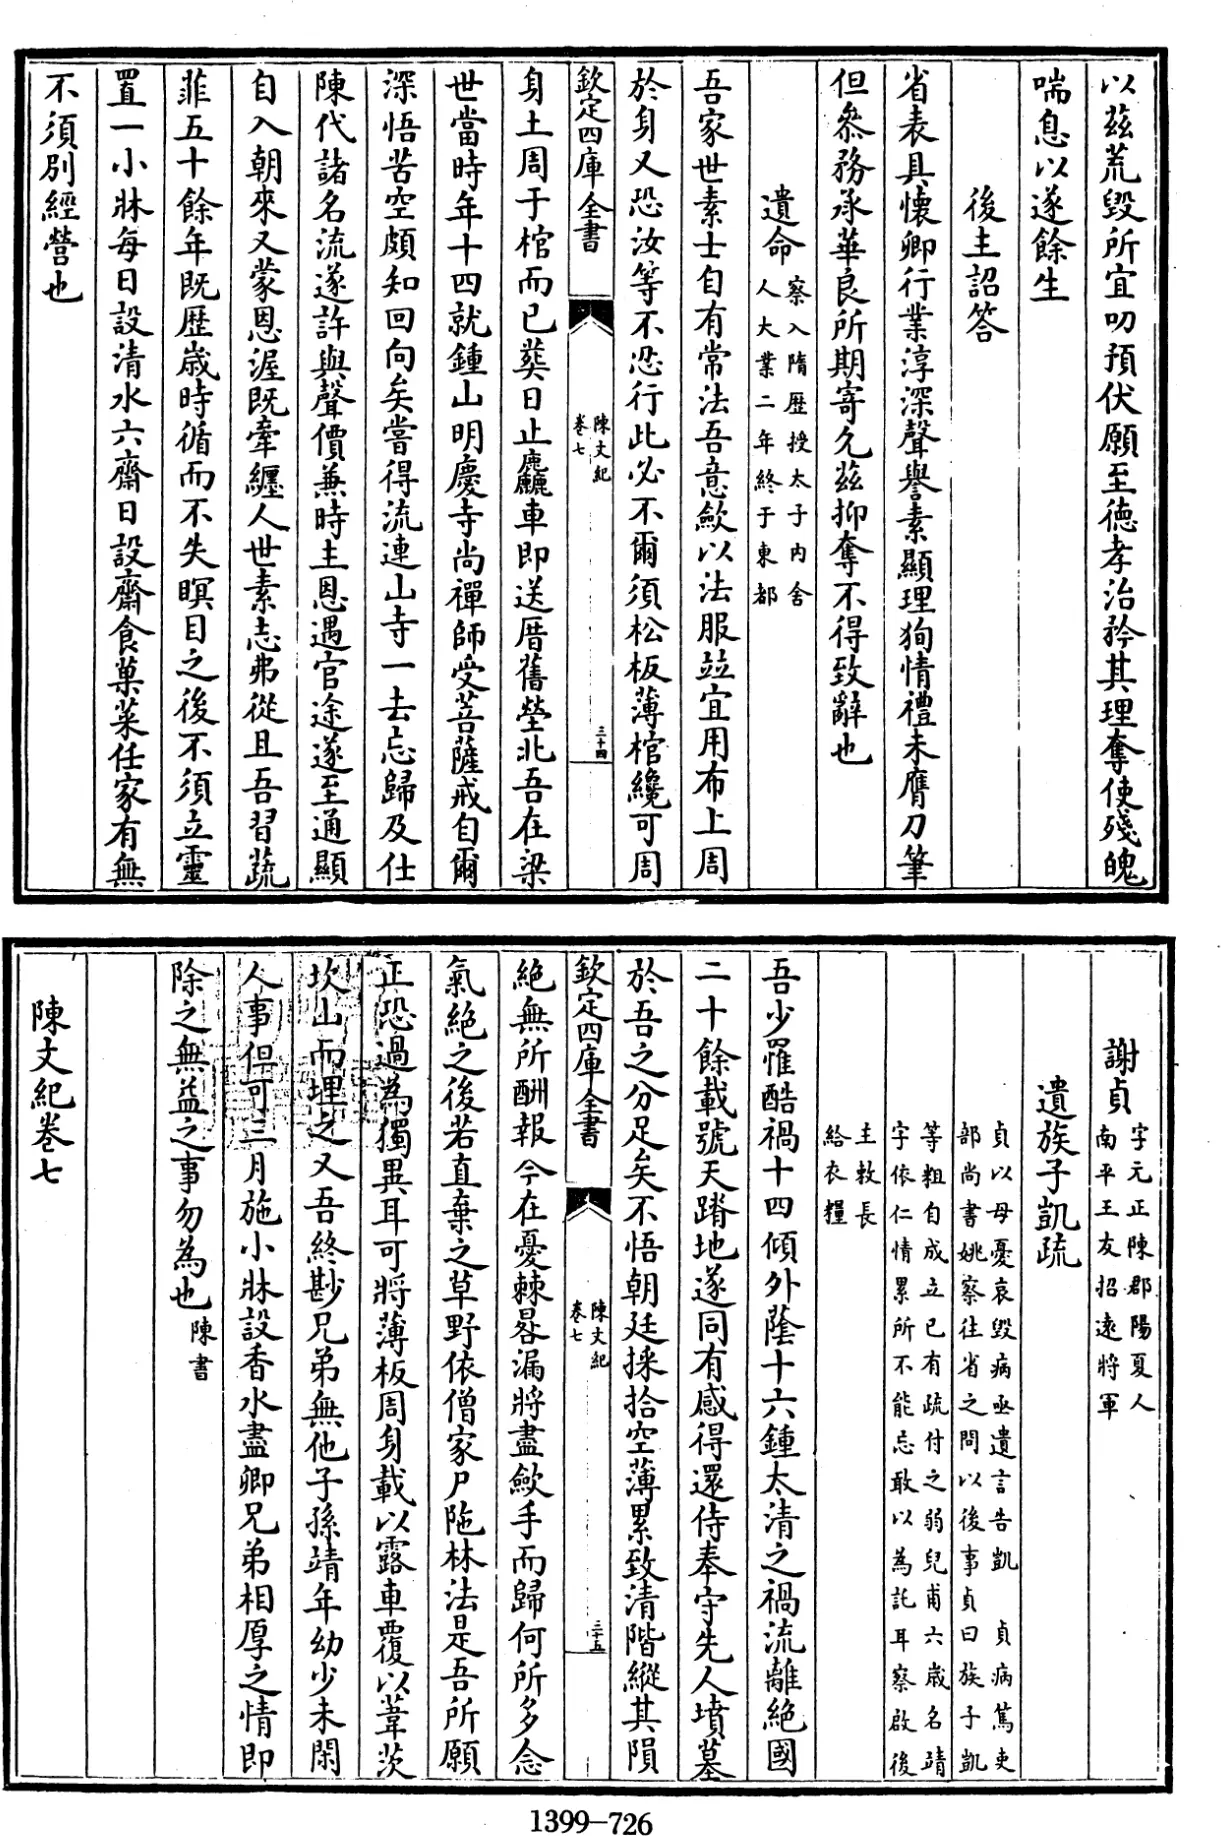 以茲荒毀所宜叨預伏願至德孝治矜其理奪使殘魄
喘息以遂餘生
後主詔答
省表具懷卿行業淳深聲譽素顯理狥情禮未膺刀筆
但叅務承華良所期寄允茲抑奪不得致辭也
遺命
察入隋歷授太子内舍
人大業二年終于東都
吾家世素士自有常法吾意歛以法服竝宜用布上周
於身又恐汝等不忍行此必不爾須松板薄棺纔可周
欽定四庫全書
陳文紀
卷七
三十四
身土周于棺而已葬日止麤車即送厝舊塋北吾在梁
世當時年十四就鍾山明慶寺尚禪師受菩薩戒自爾
深悟苦空頗知回向矣嘗得流連山寺一去忘歸及仕
陳代諸名流遂許與聲價兼時主恩遇官途遂至通顯
自入朝來又蒙恩渥既牽纒人世素志弗從且吾習蔬
菲五十餘年既歷歲時循而不失瞑目之後不須立靈
置一小牀每日設清水六齋日設齋食菓菜任家有無
不須別經營也
謝貞
字元正陳郡陽夏人
南平王友招遠將軍
遺族子凱疏
貞以母憂哀毀病亟遺言告凱 貞病篤吏
部尚書姚察往省之問以後事貞曰族子凱
等粗自成立已有疏付之弱兒甫六歲名靖
字依仁情累所不能忘敢以為託耳察啟後
主敕長
給衣糧
吾少罹酷禍十四傾外蔭十六鍾太清之禍流離絕國
二十餘載號天蹐地遂同有感得還侍奉守先人墳墓
於吾之分足矣不悟朝廷採拾空薄累致清階縱其隕
欽定四庫全書
陳文紀
卷七
三十五
絕無所酬報今在憂棘晷漏將盡歛手而歸何所多念
氣絕之後若直棄之草野依僧家尸陁林法是吾所願
正恐過為獨異耳可將薄板周身載以露車覆以葦茨
坎山而埋之又吾終尠兄弟無他子孫靖年幼少未閑
人事但可三月施小牀設香水盡卿兄弟相厚之情即
除之無益之事勿為也
陳書
陳文紀卷七
1399-726